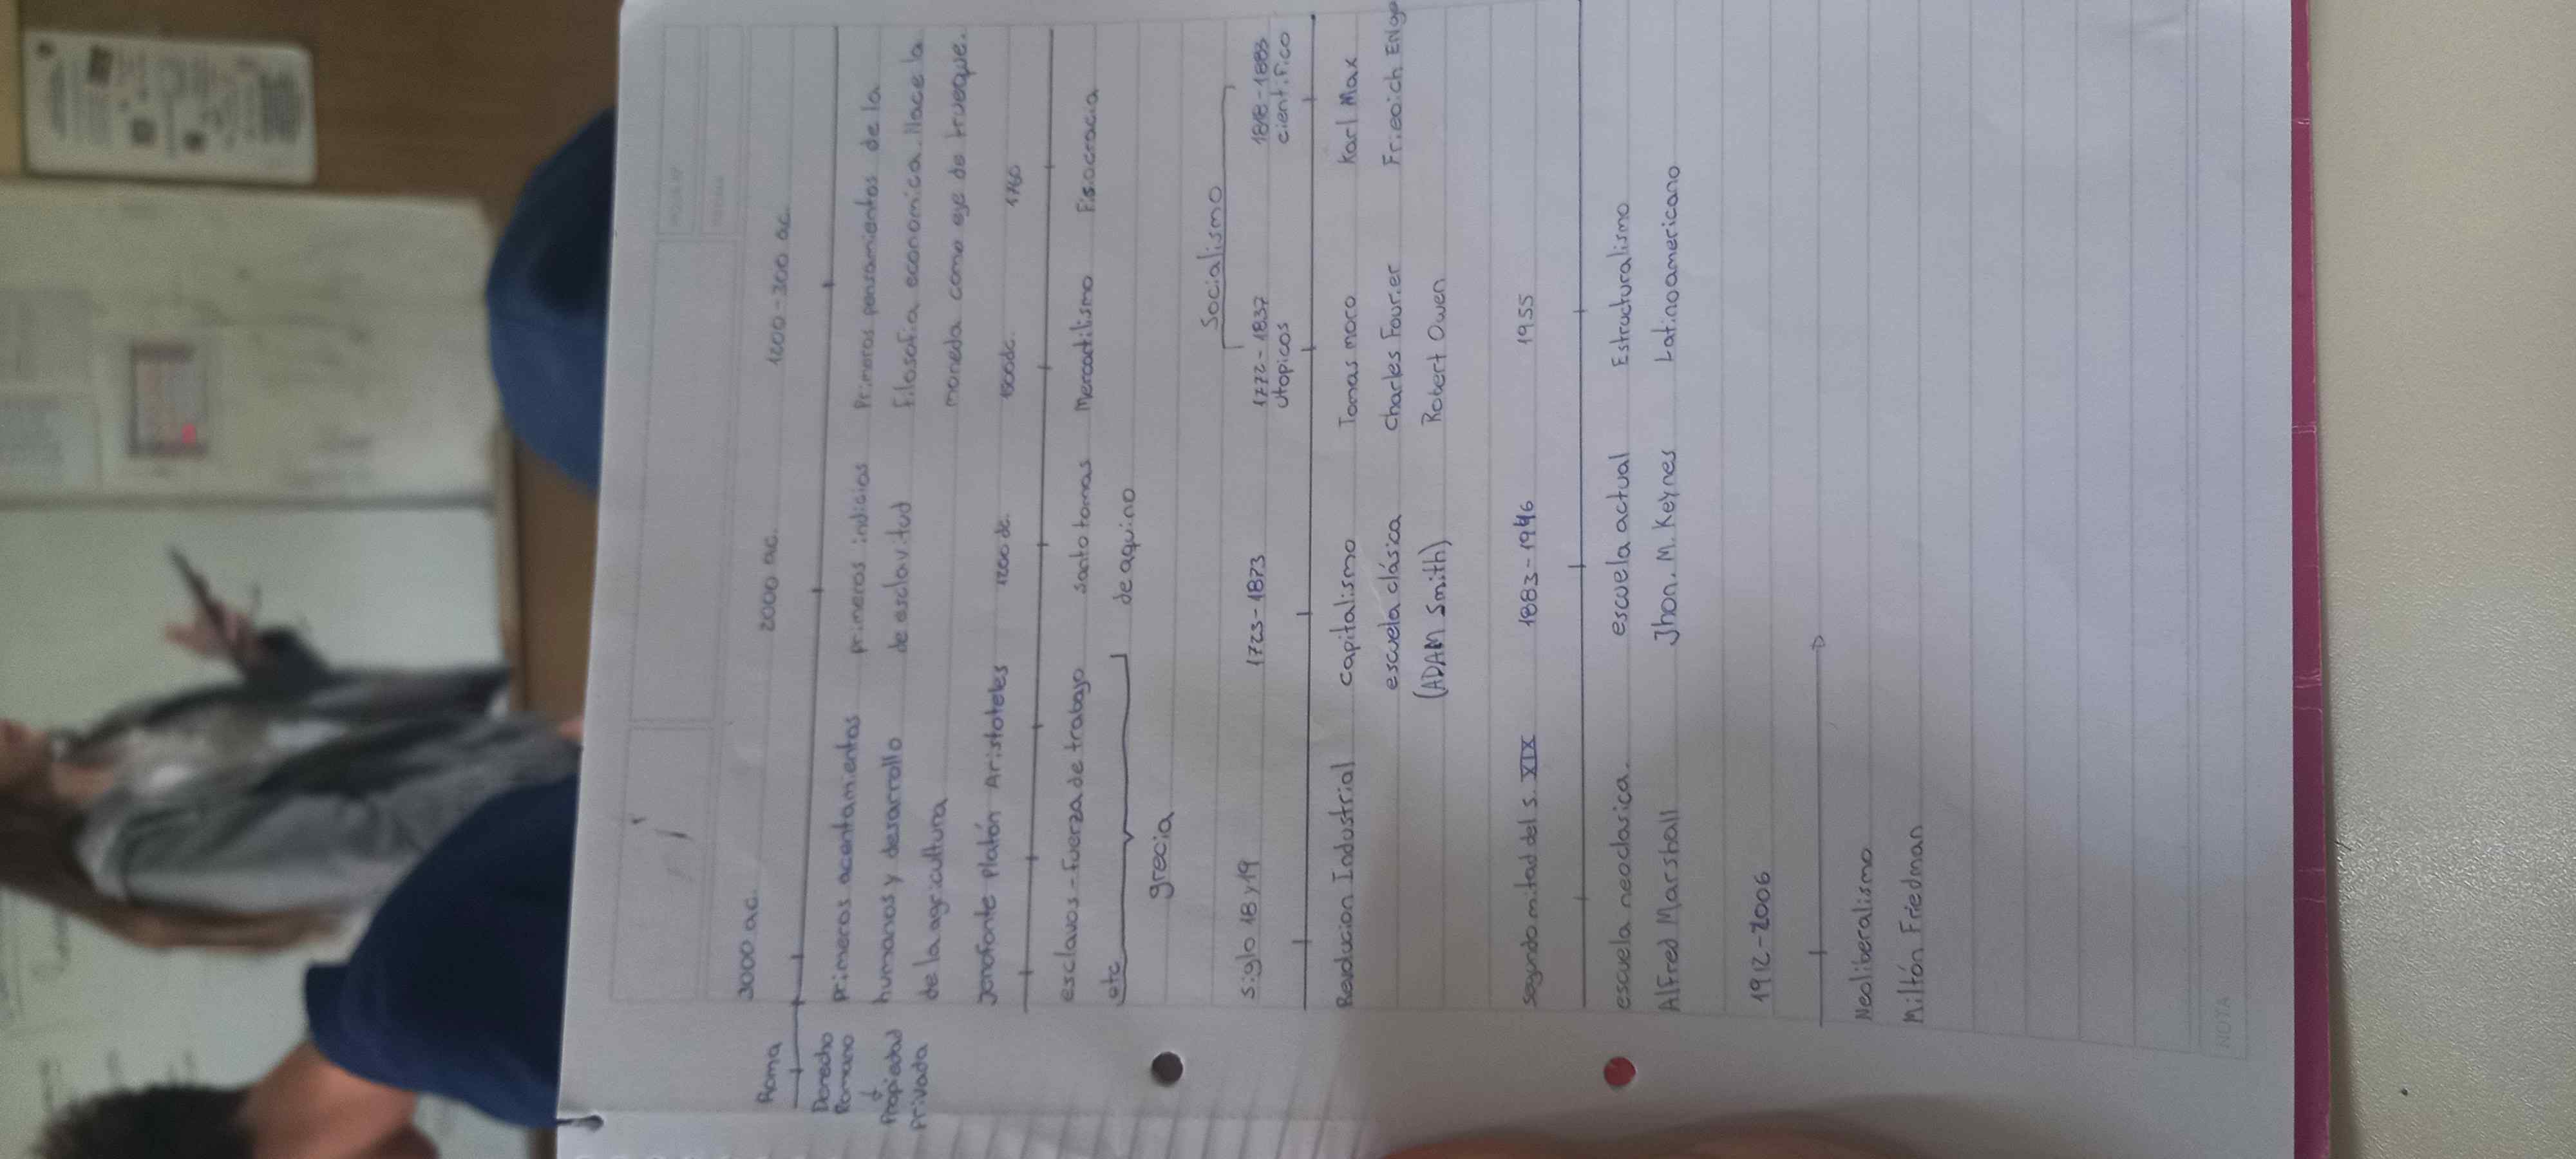 Roma
Derecho
Romano
↓
Propiedad
privada
3000 a.c. 2000 a.c. 1200-300 a.c.
primeros acentamientos primeros indicios Primeros pensamientos de la
humanos y desarrollo de esclavitud filosofia economica. Nace la
de la agricultura moneda como eje de trueque.
Jonofonte platón Aristoteles 1200 dc. 1500dc. 1760
esclavos - fuerza de trabajo santo tomas Mercactilismo Fisocracia
etc de aquino
grecia
Socialismo
siglo 18 y 19 1723-1873 1772-1837 1818-1883
utopicos cientifico
Revolucion Industrial capitalismo Tomas moro Karl Max
escuela clásica charles Fourier Frieoich Enge
(ADAM Smith) Robert Owen
segundo mitad del s. XIX 1883-1946 1955
escuela neoclasica. escuela actual Estructuralismo
Alfred Marshall Jhon. M. Keynes Latinoamericano
1912-2006
Neoliberalismo
Miltón Friedman
NOTA